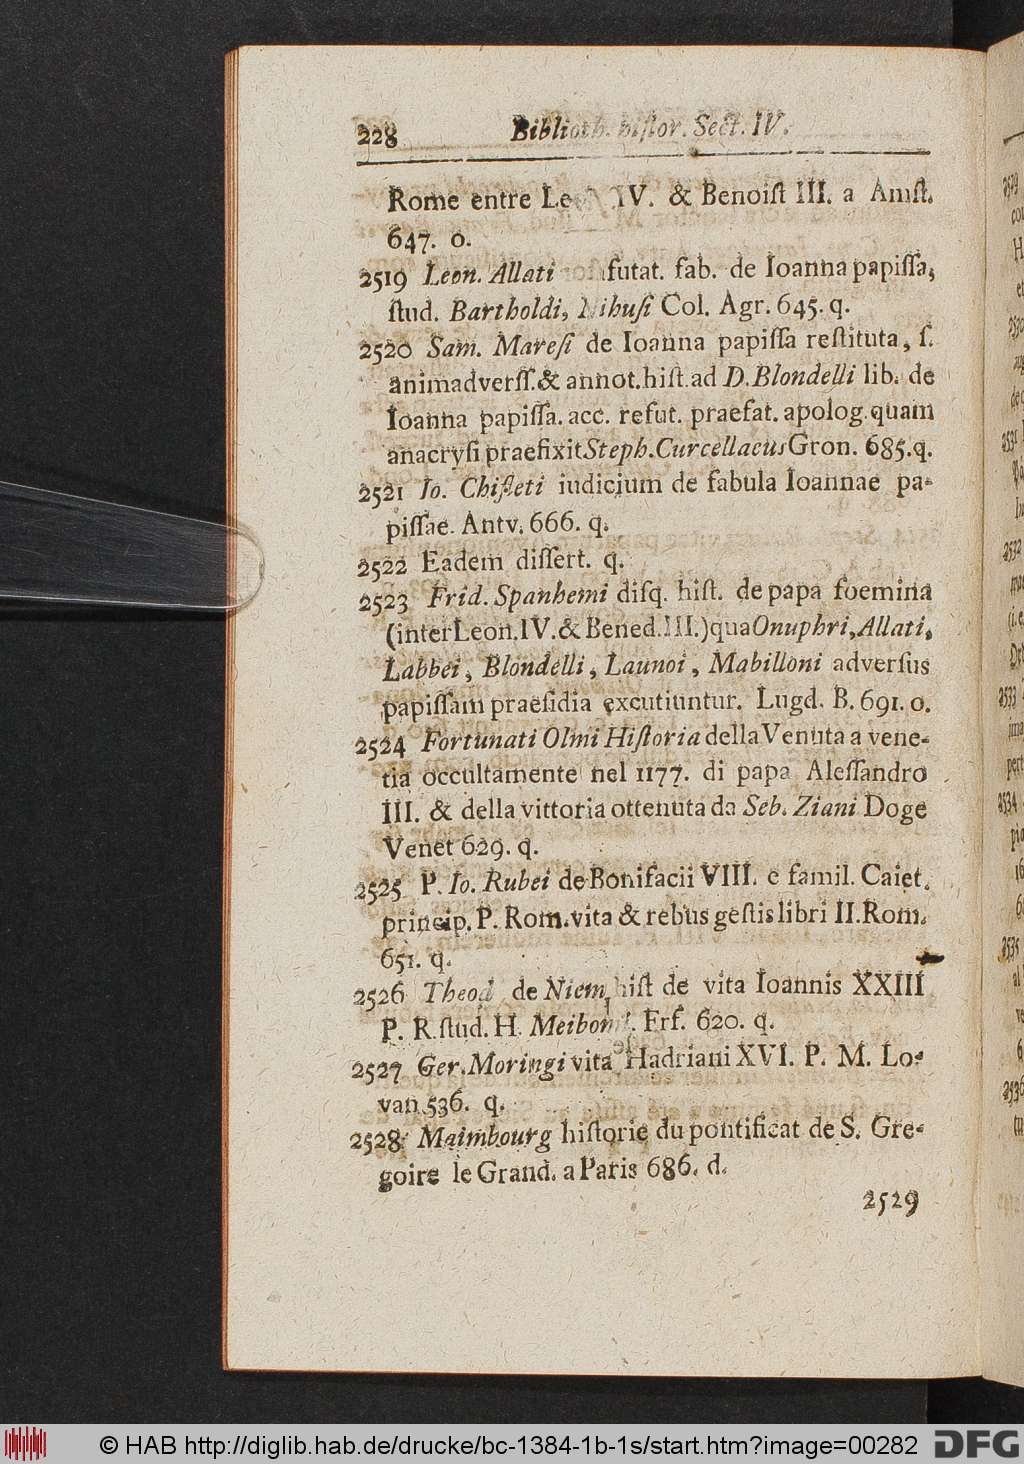 228 Biblioth. hiſtor. Sect. IV.
Rome entre Le IV. & Benoiſt III. a Amſt.
647. o.
2519 Leon. Allati futat. fab. de Ioanna papiſſa,
ſtud. Bartholdi, Nihuſi Col. Agr. 645. q.
2520 Sam. Mareſi de Ioanna papiſſa reſtituta, ſ.
animadverſſ. & annot. hiſt. ad D. Blondelli lib. de
Ioanna papiſſa. acc. refut. praefat. apolog. quam
anacryſi praefixit Steph. Curcellaeus Gron. 685. q.
2521 Io. Chifleti iudicium de fabula Ioannae pa-
piſſae. Antv. 666. q.
2522 Eadem diſſert. q.
2523 Frid. Spanhemi diſq. hiſt. de papa foemina
(inter Leon. IV. & Bened. III.) qua Onuphri, Allati,
Labbei, Blondelli, Launoi, Mabilloni adverſus
papiſſam praeſidia excutiuntur. Lugd. B. 691. o.
2524 Fortunati Olmi Hiſtoria della Venuta a vene-
tia occultamente nel 1177. di papa Aleſſandro
III. & della vittoria ottenuta da Seb. Ziani Doge
Venet 629. q.
2525 P. Io. Rubei de Bonifacii VIII. e famil. Caiet.
princip. P. Rom. vita & rebus geſtis libri II. Rom.
651. q.
2526 Theod de Niem hiſt de vita Ioannis XXIII
P. R. ſtud. H. Meibomi. Frf. 620. q.
2527 Ger. Moringi vita Hadriani XVI. P. M. Lo-
van 536. q.
2528 Maimbourg hiſtorie du pontificat de S. Gre-
goire le Grand. a Paris 686. d.
2529
© HAB http://diglib.hab.de/drucke/bc-1384-1b-1s/start.htm?image=00282 DFG